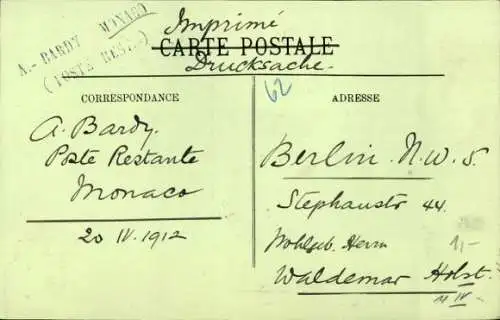 A. - BARDY MONACO
(POSTE REST..)
Imprimé
CARTE POSTALE
Drucksache.
62
CORRESPONDANCE
A. Bardy.
Poste Restante
Monaco
20 IV. 1912
ADRESSE
Berlin. N.W.5
Stephanstr 44.
Wohlgeb. Herrn
1,-
Waldemar Holst.